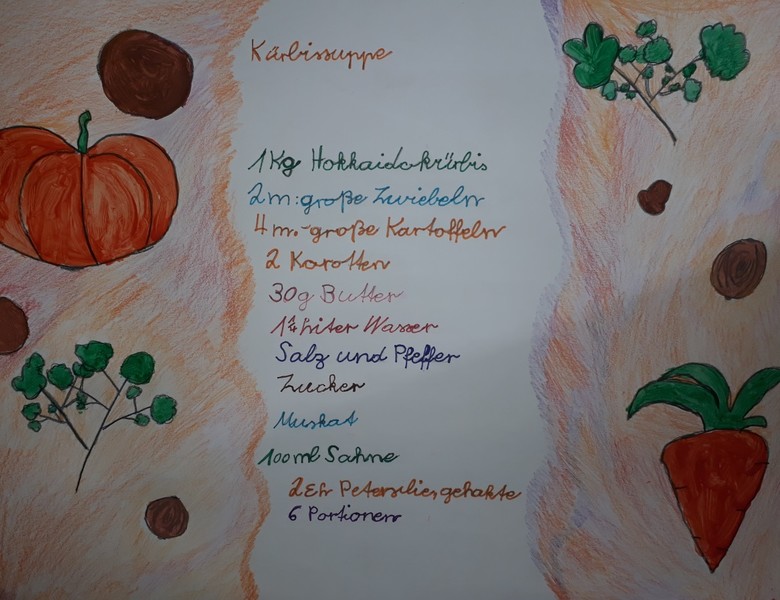 Kürbissuppe
1Kg Hokkaidokürbis
2 m: große Zwiebeln
4 m.-große Kartoffeln
2 Karotten
30g Butter
1¼ Liter Wasser
Salz und Pfeffer
Zucker
Muskat
100ml Sahne
2 Eßl Petersilie, gehakte
6 Portionen